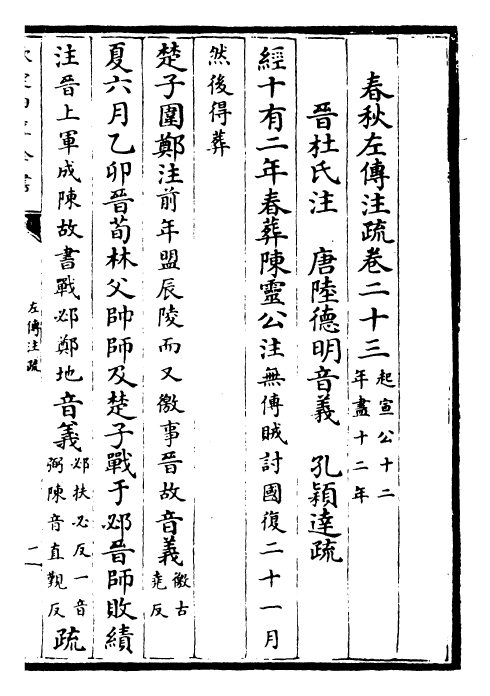 春秋左傳注疏卷二十三起宣公十二年盡十二年
晉杜氏注 唐陸德明音義 孔穎達疏
經十有二年春葬陳靈公注無傳賊討國復二十一月
然後得葬
楚子圍鄭注前年盟辰陵而又徼事晉故音義徼古堯反
夏六月乙卯晉荀林父帥師及楚子戰于邲晉師敗績
注晉上軍成陳故書戰邲鄭地音義邲扶必反一音弼陳音直覲反疏
左傳注疏
二